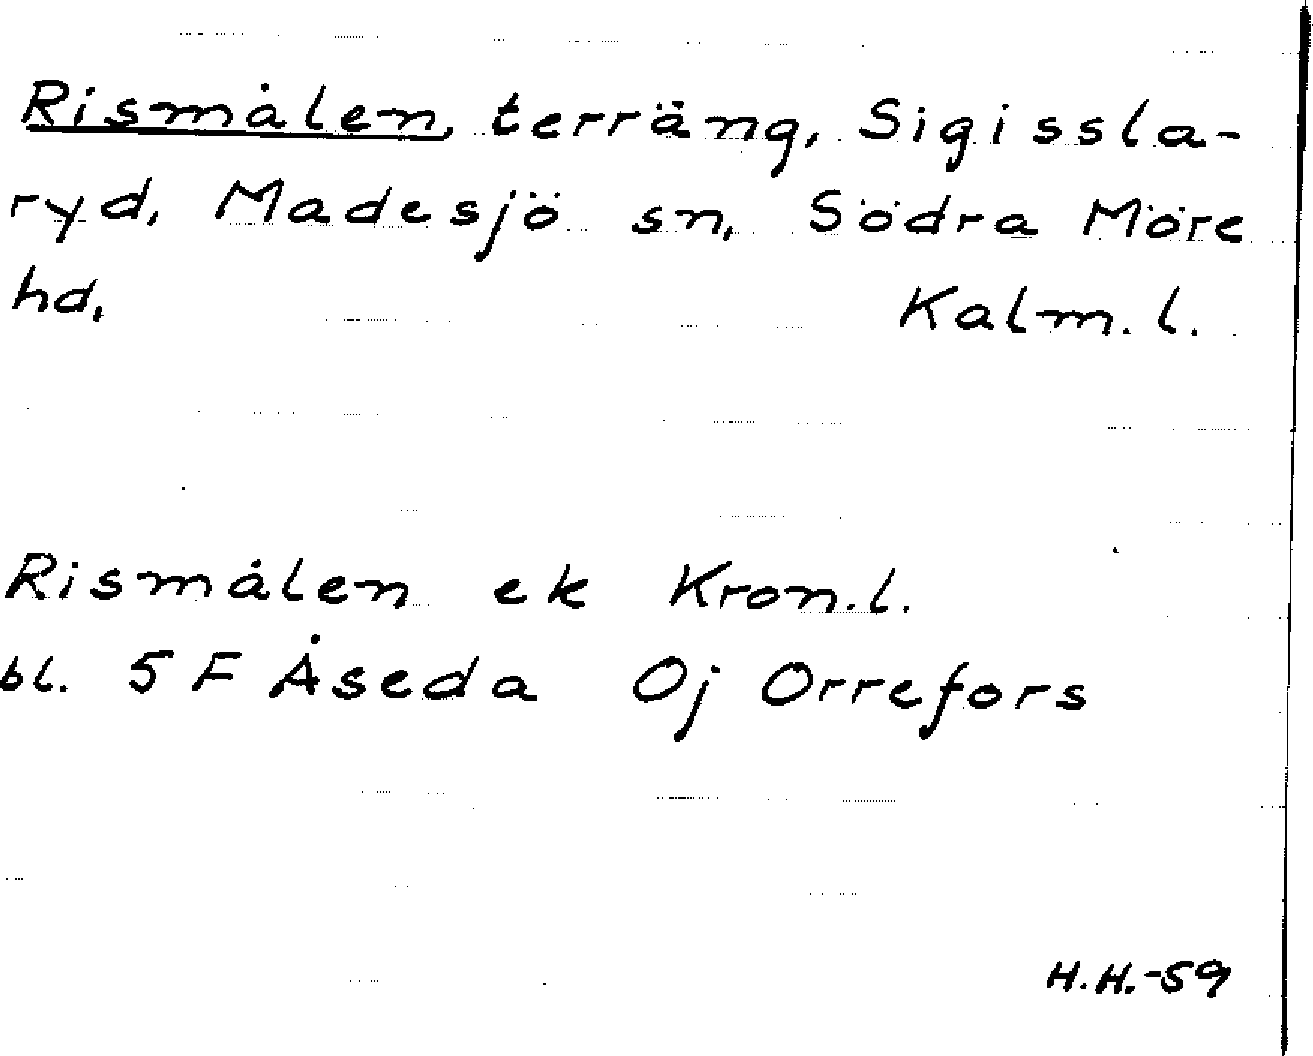 Rismålen, terräng, Sigissla-
ryd, Madesjö sn, Södra Möre
hd, Kalm. l.
Rismålen ek Kron. l.
bl. 5 F Åseda Oj Orrefors
H.H.-59